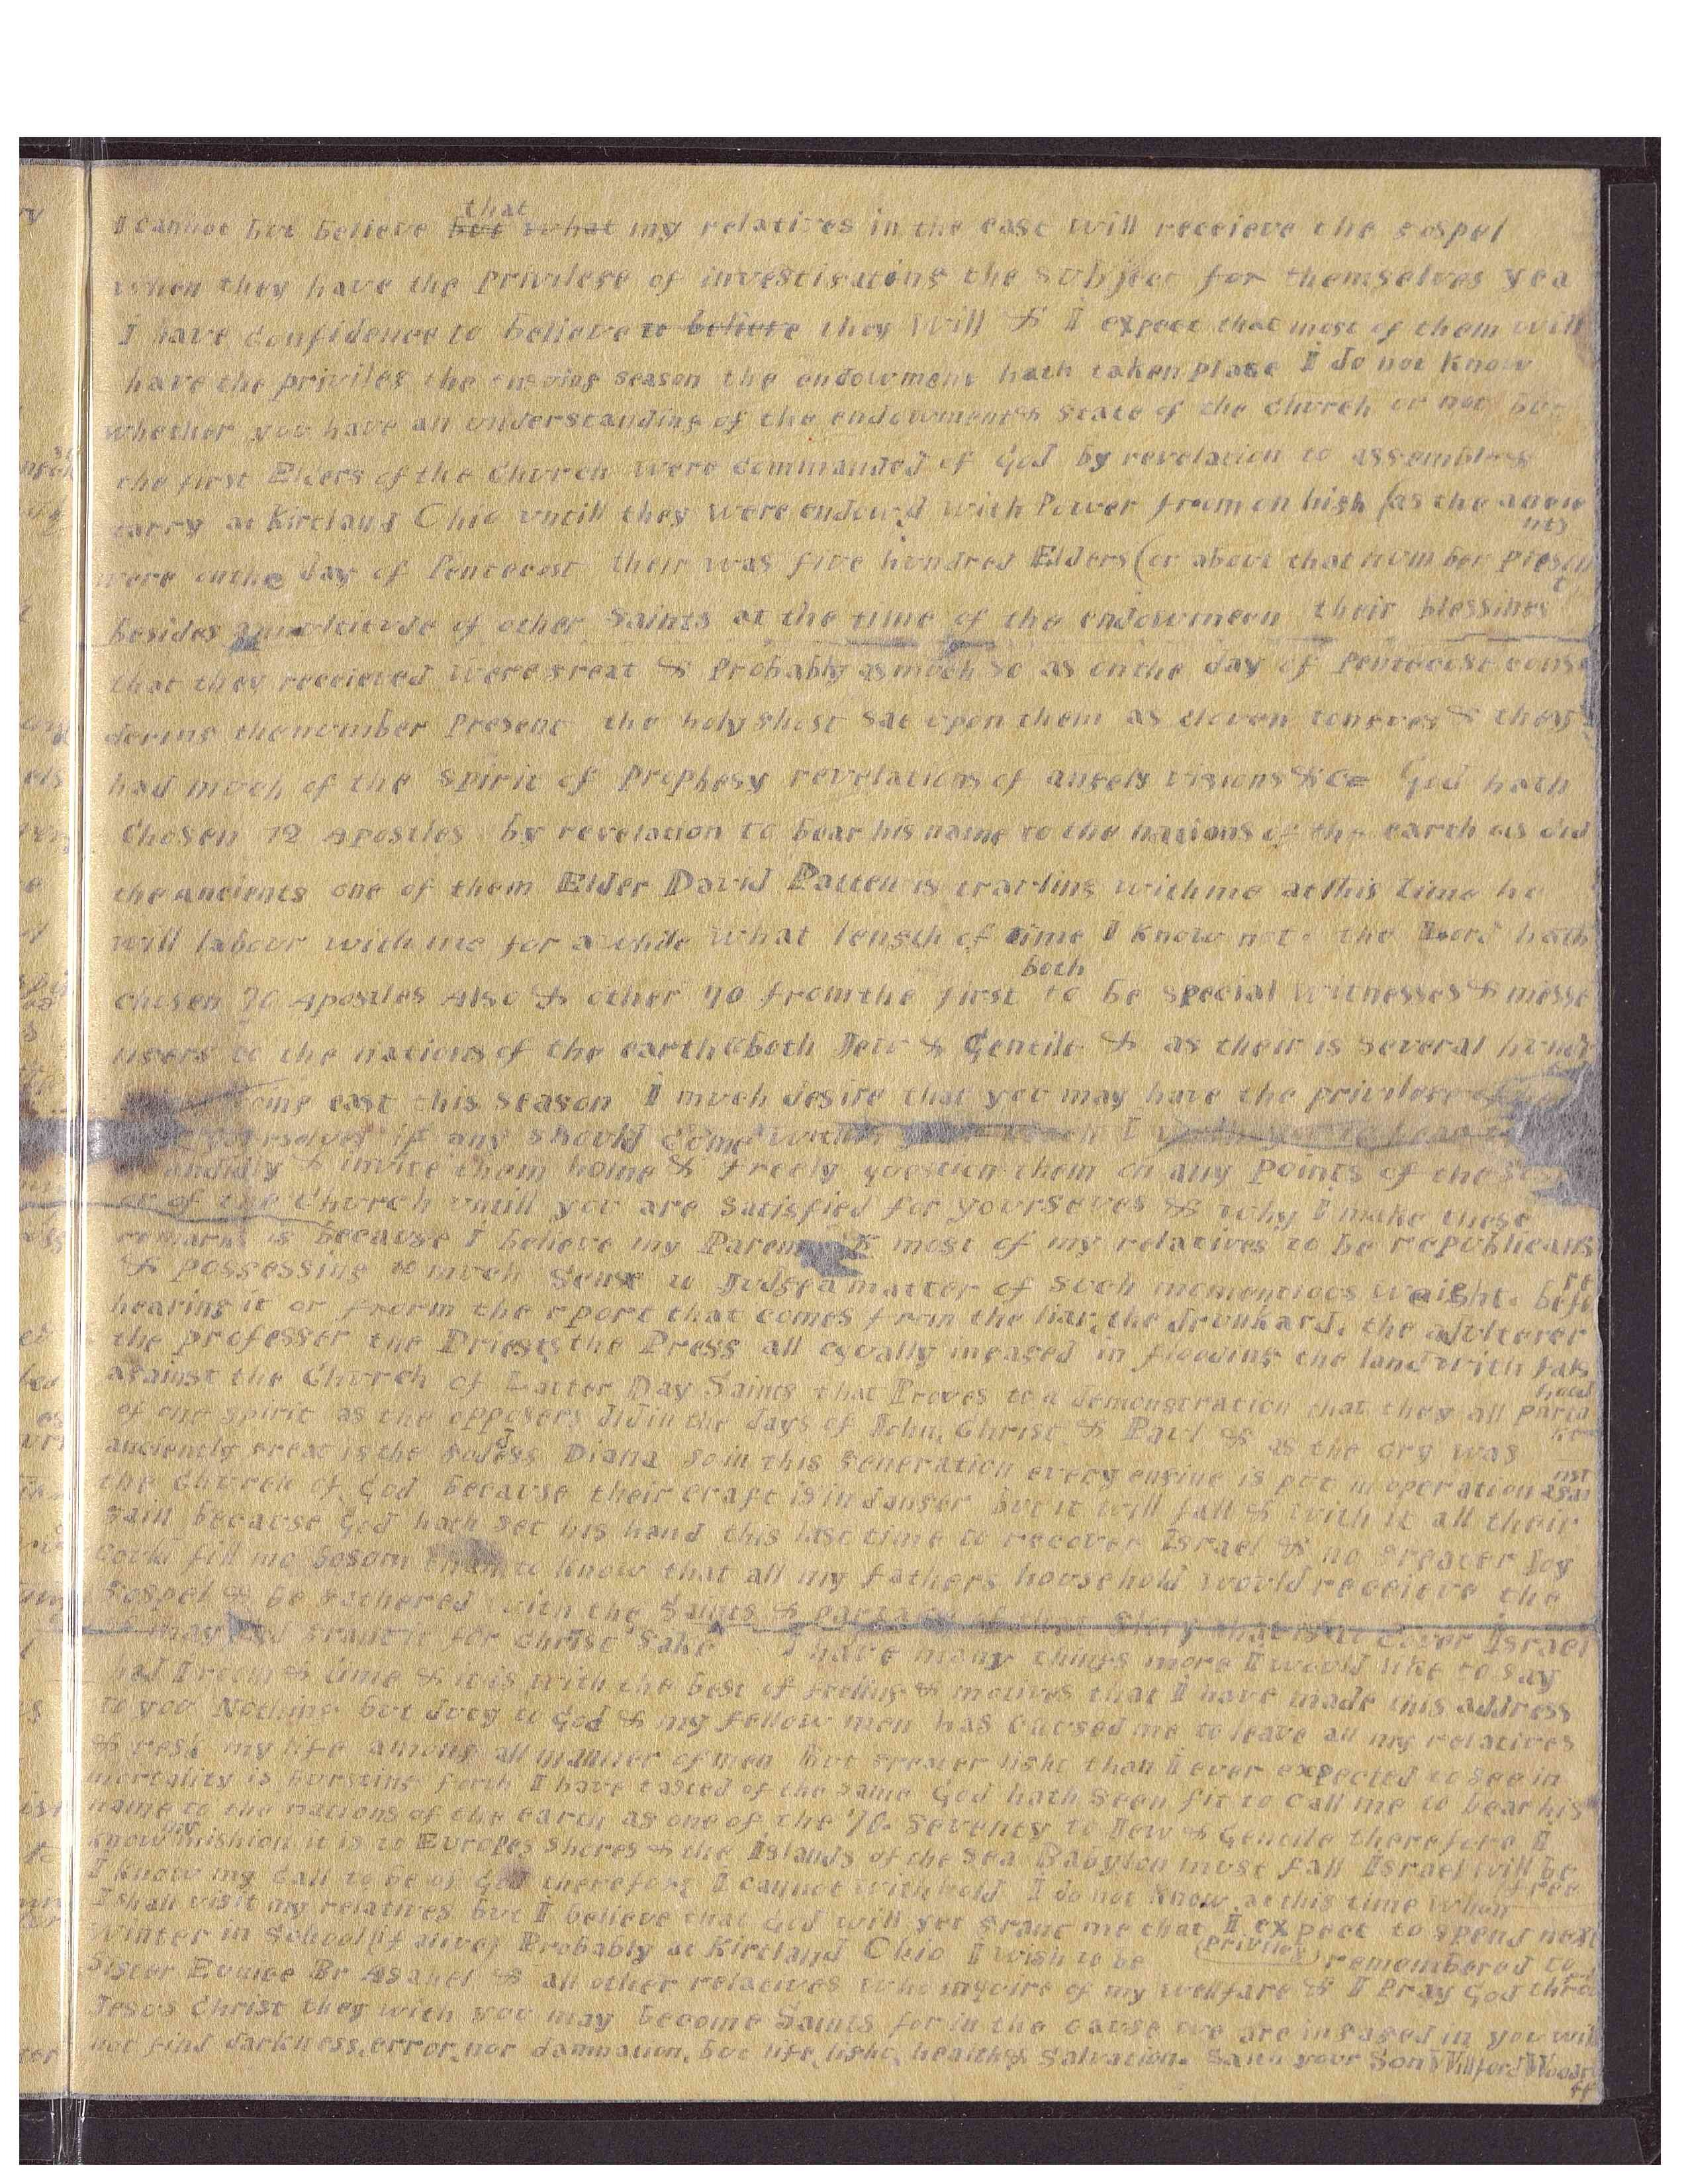 I cannot but believe but what that my relatives in the east will receieve the gospel
when they have the Privilege of investigating the subject for themselves yea
I have confidence to believe to believe they will & I expect that most of them will
have the privileg the ensuing season the endowment hath taken place I do not know
whether you have an understanding of the endowment & state of the church or not but
the first Elders of the Church were commanded of God by revelation to assemble &
tarry at Kirtland Ohio untill they were endowd with Power from on high (as the ancie
nts
were on the day of Pentecost their was five hundred Elders (or about that number presen
t
besides a multitude of other Saints at the time of the endowmeen their blessings
that they receieved were great & Probably as much so as on the day of Pentecost consi
dering the number Present the holy ghost sat upon them as cloven tongues & they
had much of the spirit of Prophesy revelations of angels visions &c= God hath
Chosen 12 Apostles by revelation to bear his name to the nations of the earth as did
the ancients one of them Elder David Patten is travling with me at this time he
will labour with me for a while what length of time I know not. the Lord hath
chosen 70 Apostles Also & other 70 from the first both to be special witnesses & messe
ngers to the nations of the earth both Jew & Gentile & as their is several hundr
come east this season I much desire that you may have the privilege of
yourselves if any should come within reach I you to hear
candidly & invite them home & freely question them on any points of the
or of the Church untill you are satisfied for yourseves & why I make these
remarks is because I believe my Parents & most of my relatives to be republicans
& possessing to much sense to Judge a matter of such momentious weight. befo
re
hearing it or froorm the rport that comes from the liar, the drunkard, the adulterer
the professer the Priests the Press all equally ingaged in flooding the land with fals
hood
against the Church of Latter Day Saints that Proves to a demonstration that they all parta
ke
of one spirit as the opposers did in the days of John, Christ, & Paul & as the cry was
anciently great is the godess Diana so in this generation every engine is put in operation agai
nst
the Church of God because their craft is in danger but it will fall & with it all their
gain because God hath set his hand this last time to recover Israel & no greater Joy
could fill mo bosom than to know that all my Fathers household would receieve the
gospel & be gathered with the Saints & partake of that glory that is to cover Israel
may God grant it for Christ sake I have many things more I would like to say
had I room & time & it is with the best of feelings & motives that I have made this address
to you Nothing but duty to God & my fellow men has caused me to leave all my relatives
& resk my life among all manner of men But greater light than I ever expected to see in
mortality is bursting forth I have tasted of the same God hath seen fit to call me to bear his
name to the nations of the earth as one of the 70. Seventy to Jew & Gentile therefore I
know my mishion it is to Europes shores & the Islands of the Sea Babylon must fall Israel will be
free
I know my call to be of God therefore I cannot withhold I do not know at this time when
I shall visit my relatives but I believe that God will yet grant me that privileg I expect to spend next
Winter in School (if alive) Probably at Kirtland Ohio I wish to be remembered to
Sister Eunice Br Asahel & all other relatives who inquire of my wellfare & I Pray God thro
Jesus Christ they with you may become Saints for in the cause we are ingaged in you will
not find darkness, error, nor damnation, but life, light, health & Salvation. Saith your Son Willford Woodru
ff